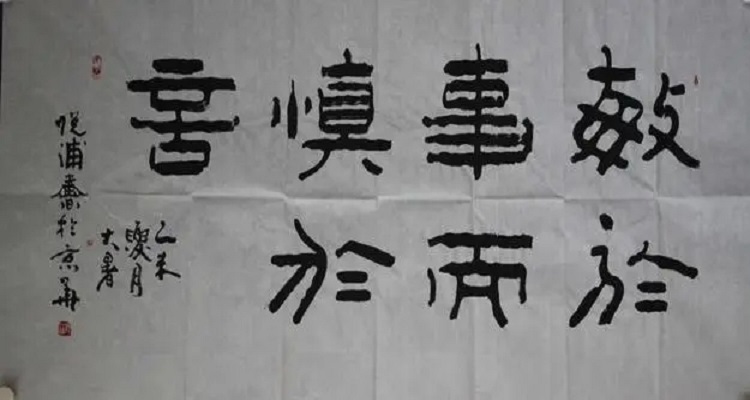 敏於
事而
慎於
言
乙未
夏月
大暑
悦浦書於京華